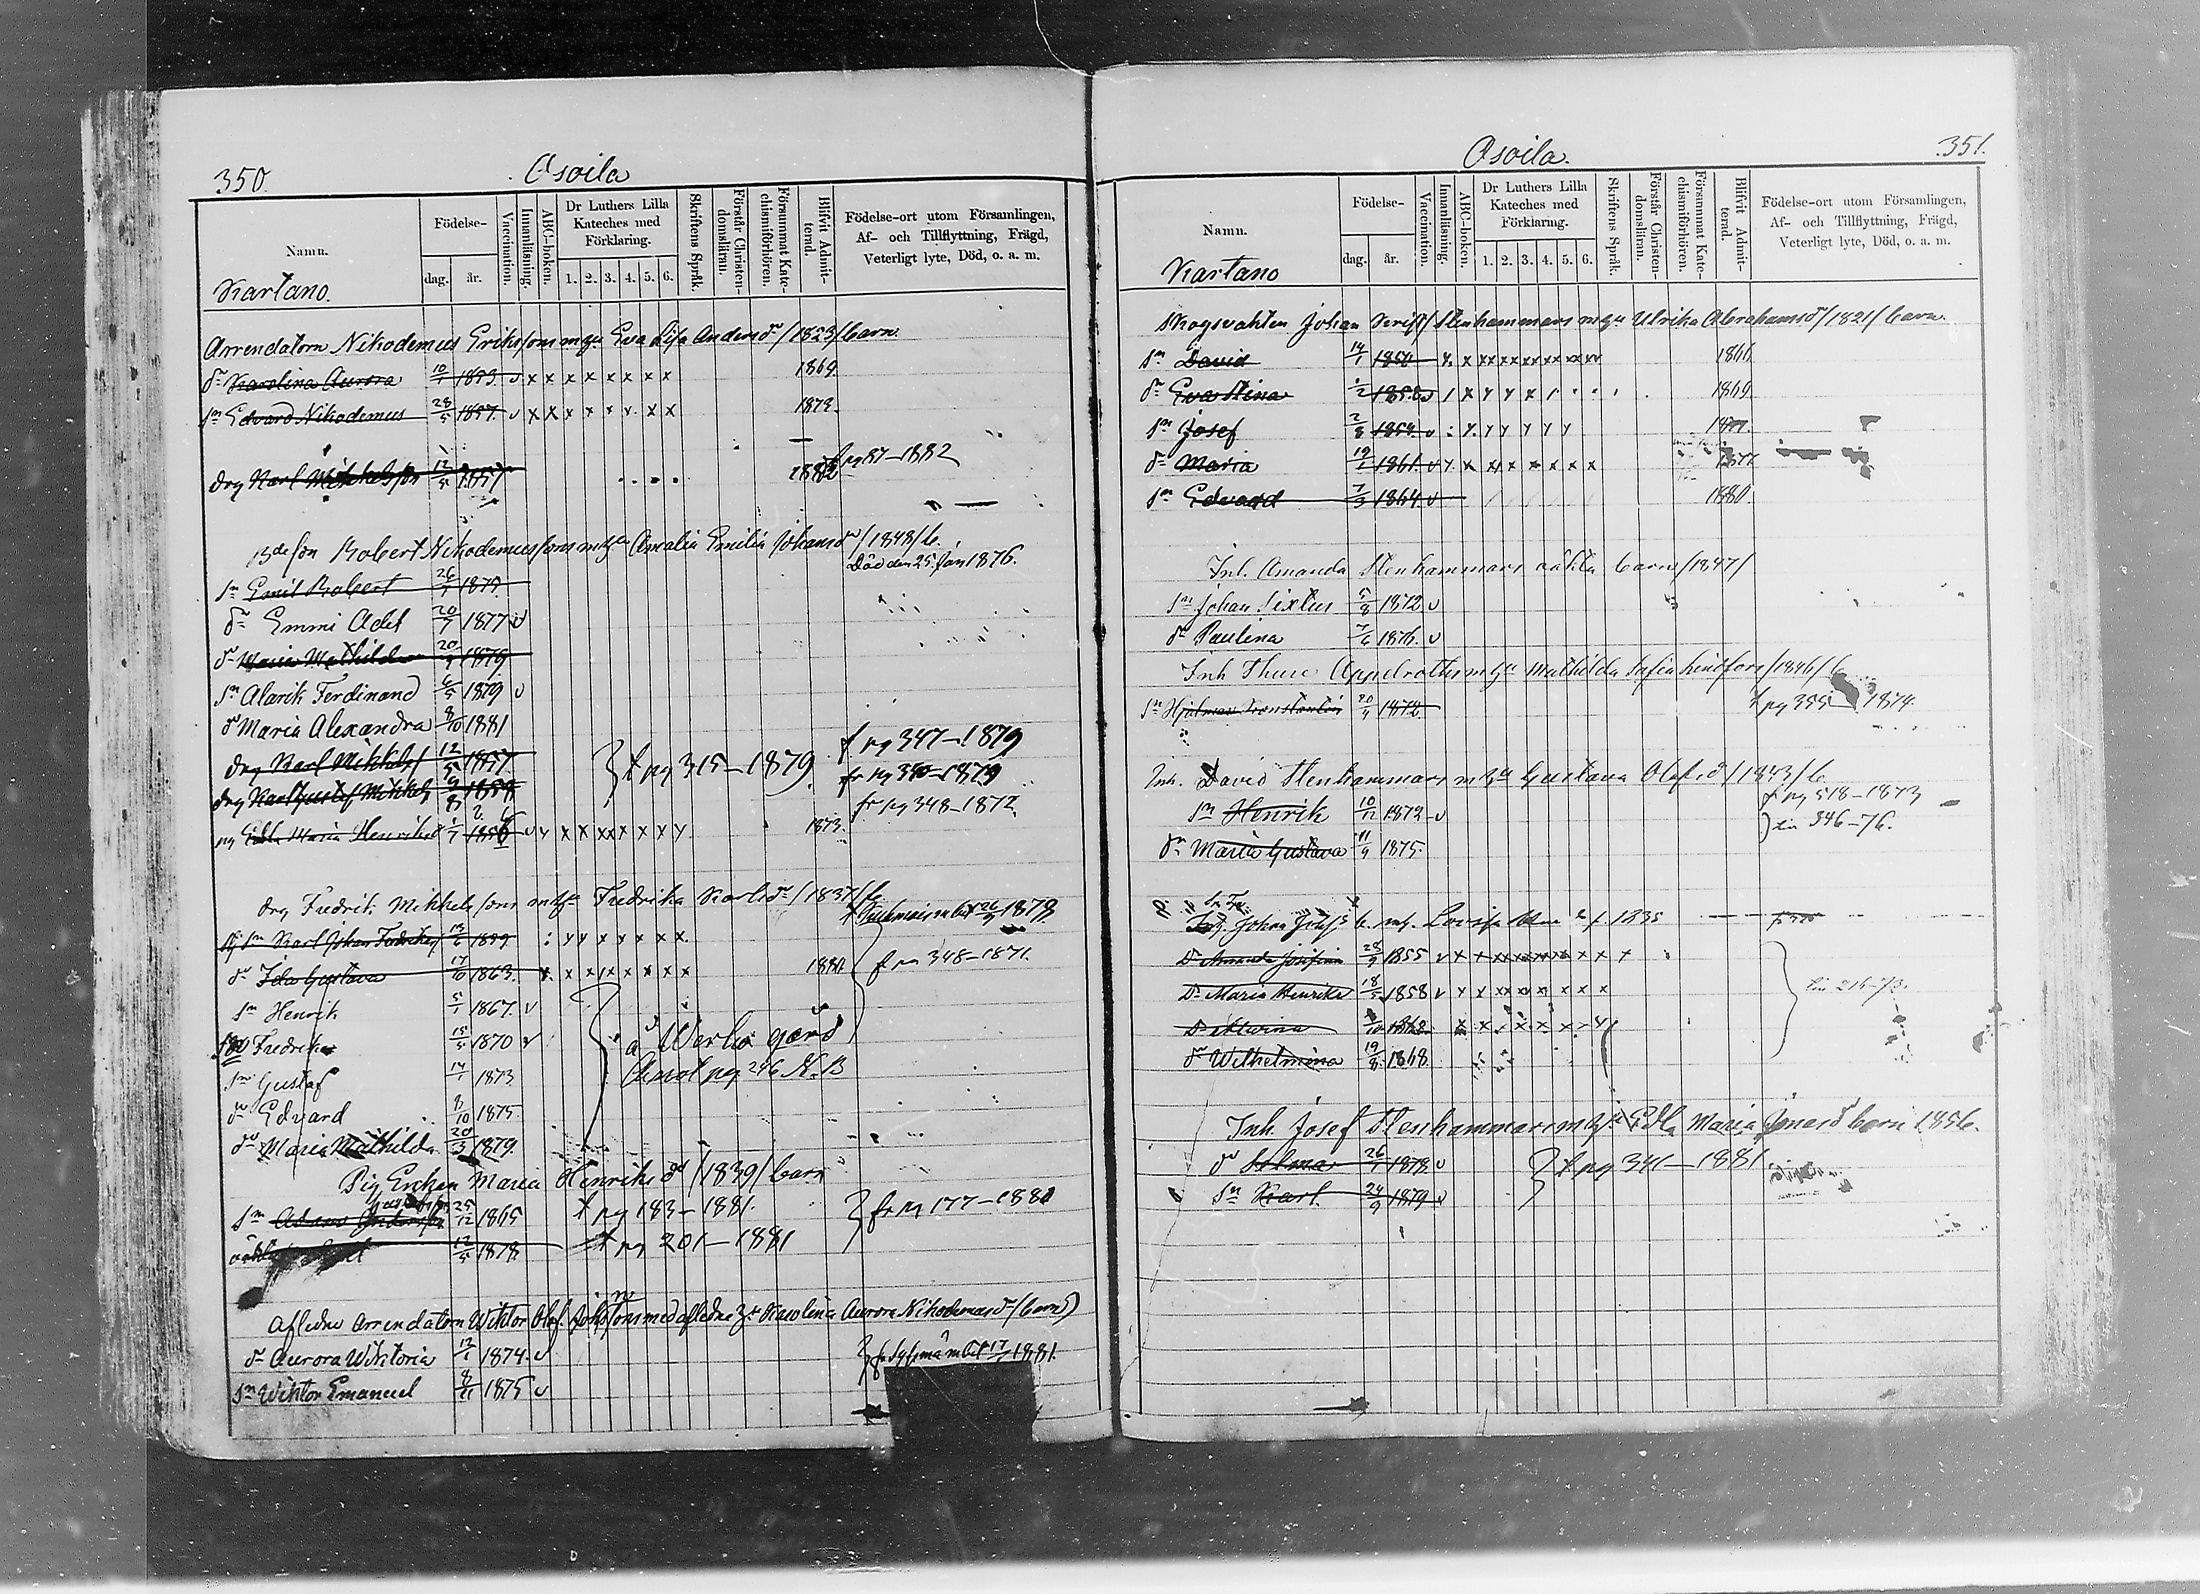 350.
Osoila
Namn.
Kartano.
Födelse-
dag.
år.
Vaccination.
Innanläsning.
ABC-boken.
Dr Luthers Lilla
Kateches med
Förklaring.
1. 2. 3. 4. 5. 6.
Skriftens Språk.
Förstår Christen-
domsläran.
Försummat Kate-
chismiförhören.
Blifvit Admit-
terad.
Födelse-ort utom Församlingen,
Af- och Tillflyttning, Frägd,
Veterligt lyte, Död, o. a. m.
Arrendatorn Nikodemus Erikssons m hu Eva Lisa Andersdr /1823/ barn
dr Karolina Aurora 10/1 1853. v x x x x x x x x 1869
sn Edvard Nikodemus 28/5 1857. v x x x x x x x x 1873.
drg Karl Mikkelsson 12/5 1857 1882 fr pg 87-1882
Bdesn Robert Nikodemussons m hu Amalia Emilia Johansdr /1848/ b.
Död den 25 Jan 1876.
sn Emil Robert 26/7 1875
dr Emmi Adel 20/7 1877 v
dr Maria Mathilda 20/9 1879
sn Alarik Ferdinand 6/5 1879 v
dr Maria Alexandra 8/10 1881
drg Karl Mikkelss 12/5 1857 t pg 315-1879. f pg 347-1879
drg Karl Gustaf Mikkels 9/8 1858 fr pg 350-1879
fr pg 348-1872
pg Edla Maria Henriksdr 1/7 1856 v v x x x x x x x 1873.
drg Fredrik Mikkelssons m hu Fredrika Karlsdr /1837/ b.
1878
sn Karl Johan Fredriks 13/6 1859 x x x x x x x
dr Ida Gustava 17/10 1863. x x x x x x x x 1880. f pg 348-1871.
sn Henrik 5/1 1867. v
Fredrik 15/5 1870 v å Werho gård
sn Gustaf 14/1 1873 Amot pg 246 K.B
Edvard 8/10 1875.
dr Maria Mathilda 20/3 1879.
Pig Enkan Maria Henriksdr /1839/ barn
sn 25/12 1865 t pg 183-1881. fr pg 177-1880
oäkta 12/5 1878 t pg 201-1881
Aflidne Arrendatorn Wiktor Olof Johnssons med aflidne hu Karolina Aurora Nikodemusdr (barn)
dr Aurora Wiktoria 12/1 1874. v
1881.
sn Wiktor Emanuel 8/11 1875 v
351.
Osoila.
Namn.
Kartano
Födelse-
dag.
år.
Vaccination.
Innanläsning.
ABC-boken.
Dr Luthers Lilla
Kateches med
Förklaring.
1. 2. 3. 4. 5. 6.
Skriftens Språk.
Förstår Christen-
domsläran.
Försummat Kate-
chismiförhören.
Blifvit Admit-
terad.
Födelse-ort utom Församlingen,
Af- och Tillflyttning, Frägd,
Veterligt lyte, Död, o. a. m.
Skogsvakten Johan Stenhammars m hu Ulrika Abrahamsdr /1821/ barn
sn David 14/1 1850 1866
dr Eva Stina 1869
sn Josef 2/8 1854
dr Maria 19/1 1861. v 1877
sn Edvard 7/3 1864 v 1880.
Inh. Amanda Stenhammars oäkta barn /1847/
sn Johan Sixtus 5/8 1872 v
dr Paulina 7/6 1876. v
Inh Thure Appelroths m hu Mathilda Sofia Lindfors /1846/ b
sn Hjalmar Konstantin 20/4 1872 t pg 355 1874.
Inh. David Stenhammars m hu Gustava Olofsdr /1843/ b.
fr pg 518-1873
sn Henrik 10/12 1872 v
till 346-76.
dr Maria Gustava 11/9 1875.
Johan b. m h. Lovisa f. 1835
Dr Amanda Josefina 28/9 1855
Dr Maria Henrika 18/5 1858
1862
dr Wilhelmina 19/8 1868
Inh. Josef Stenhammars m hu Edla Maria Jonasdr barn 1856.
dr Selma 26/1 1878 v t pg 341-1881
sn Karl 24/9 1879 v